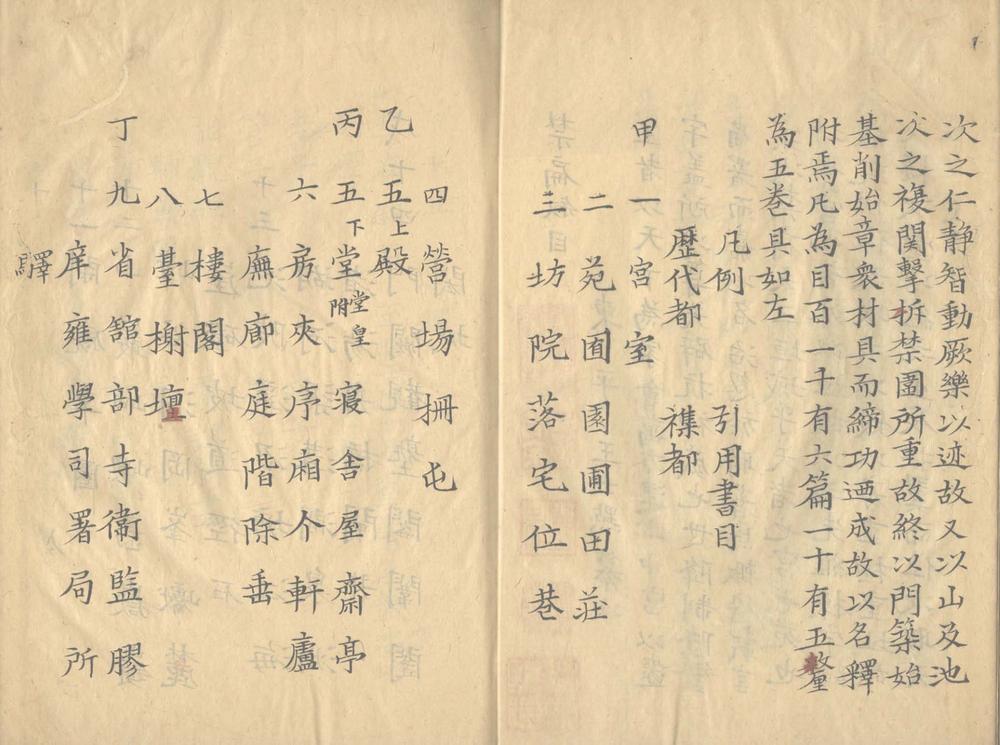 次之仁静智動厥樂以迹故又以山及池
次之複関擊柝禁圖所重故終以門築始
基削始章衆材具而締功迺成故以名釋
附焉凡為目百一十有六篇一十有五釐
為五卷具如左
凡例 引用書目
歴代都 襍都
甲一宫室
二苑囿園圃田莊
三坊院落宅位巷
四營場柵屯
乙五上殿
丙五下堂附堂皇寢舍屋齋亭
六房夾序廂个軒廬
廡廊庭階除垂
七樓閣
八臺榭壇
丁九省舘部寺衞監膠
庠雍學司署局所
驛